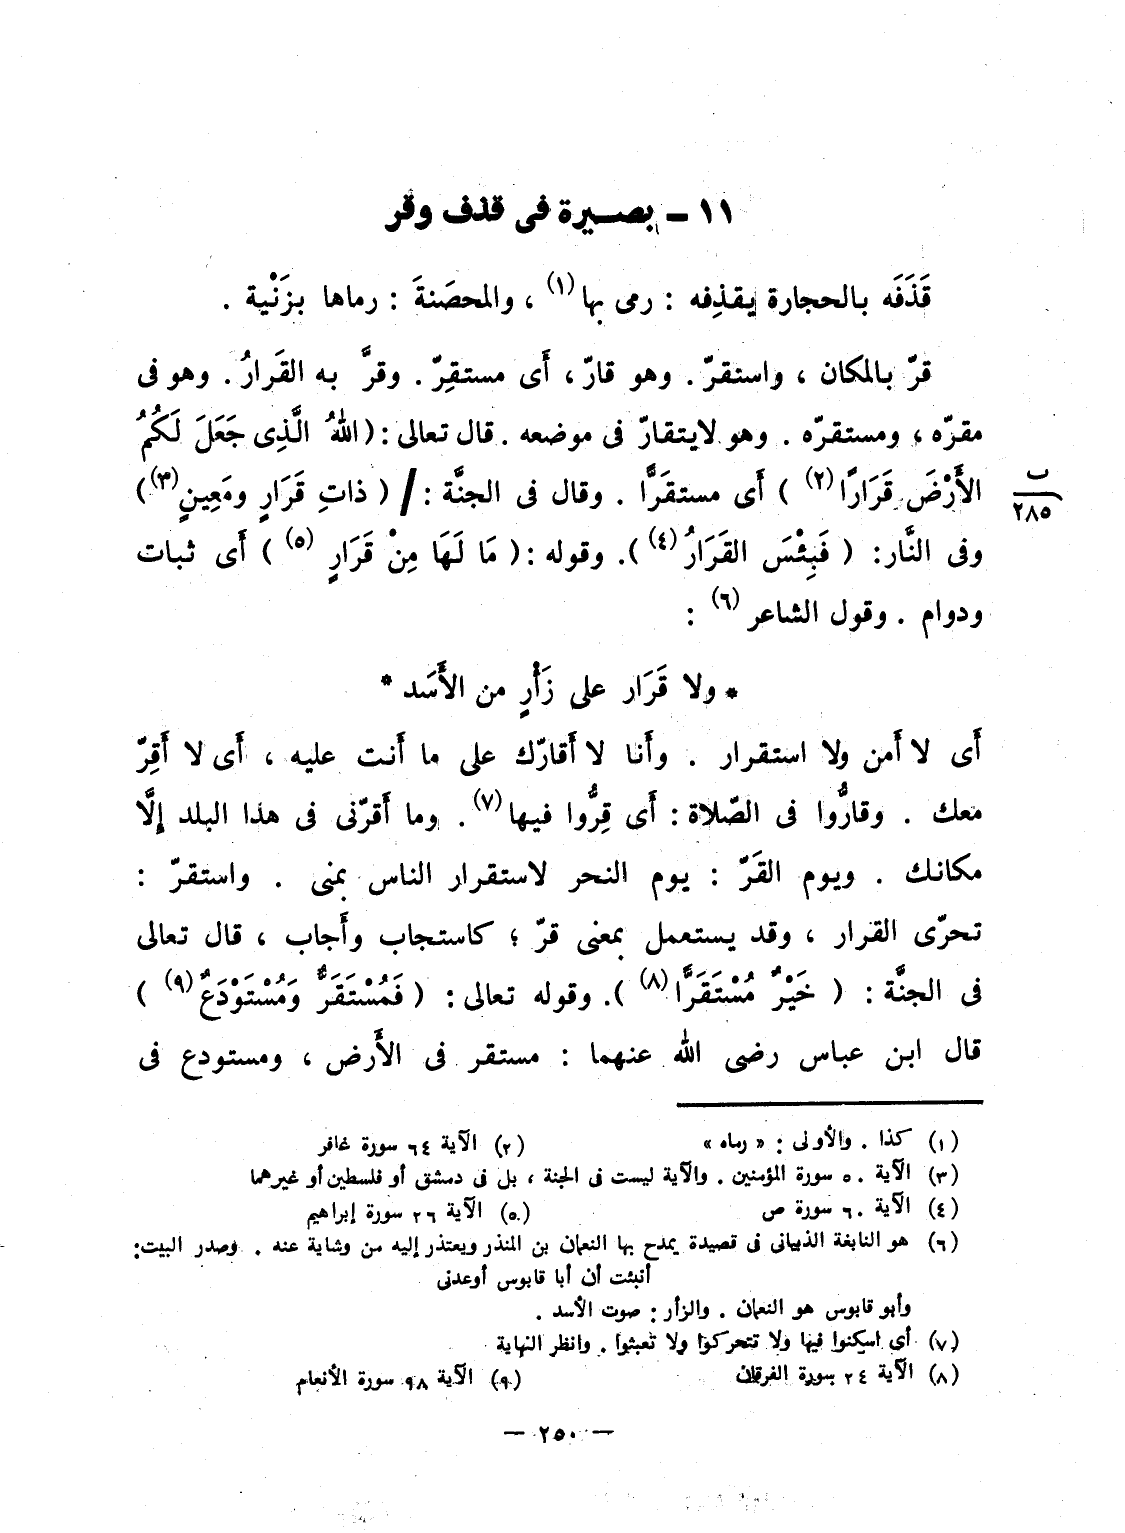 ١١ – بصيرة فى قذف وقر
قَذَفَه بالحجارة يقذِفه : رمى بها (١) ، والمحصَنةَ : رماها بزَنْية .
قرّ بالمكان ، واستقرّ . وهو قارّ ، أَى مستقِرّ . وقرَّ به القَرارُ . وهو فى
مقرّه ، ومستقرّه . وهو لايتقارّ فى موضعه . قال تعالى : ( اللهُ الَّذِى جَعَلَ لَكُمُ
الأَرْضَ قَرَارًا (٢) ) أَى مستقَرًّا . وقال فى الجنَّة : / ( ذاتِ قَرَارٍ ومَعِينٍ (٣) )
ب
٢٨٥
وفى النَّار : ( فَبِئْسَ القَرَارُ (٤) ) . وقوله : ( مَا لَهَا مِنْ قَرَارٍ (٥) ) أَى ثبات
ودوام . وقول الشاعر (٦) :
* ولا قَرَار على زَأْرٍ من الأَسَد *
أَى لا أَمن ولا استقرار . وأَنا لا أَقارّك على ما أَنت عليه ، أَى لا أَقِرّ
معك . وقارُّوا فى الصّلاة : أَى قِرُّوا فيها (٧) . وما أَقرّنى فى هذا البلد إِلَّا
مكانك . ويوم القَرّ : يوم النحر لاستقرار الناس بمنى . واستقرّ :
تحرّى القرار ، وقد يستعمل بمعنى قرّ ؛ كاستجاب وأَجاب ، قال تعالى
فى الجنَّة : ( خَيْرٌ مُسْتَقَرًّا (٨) ) . وقوله تعالى : ( فَمُسْتَقَرٌّ وَمُسْتَوْدَعٌ (٩) )
قال ابن عباس رضى الله عنهما : مستقر فى الأَرض ، ومستودع فى
(١) كذا . والأولى : « رماه »
(٢) الآية ٦٤ سورة غافر
(٣) الآية ٥٠ سورة المؤمنين . والآية ليست فى الجنة ، بل فى دمشق أو فلسطين أو غيرهما
(٤) الآية ٦٠ سورة ص
(٥) الآية ٢٦ سورة إبراهيم
(٦) هو النابغة الذبيانى فى قصيدة يمدح بها النعمان بن المنذر ويعتذر إليه من وشاية عنه . وصدر البيت :
أنبئت أن أبا قابوس أوعدنى
وأبو قابوس هو النعمان . والزأر : صوت الأسد .
(٧) أى اسكنوا فيها ولا تتحركوا ولا تعبثوا . وانظر النهاية
(٨) الآية ٢٤ سورة الفرقان
(٩) الآية ٩٨ سورة الأنعام
— ٢٥٠ —